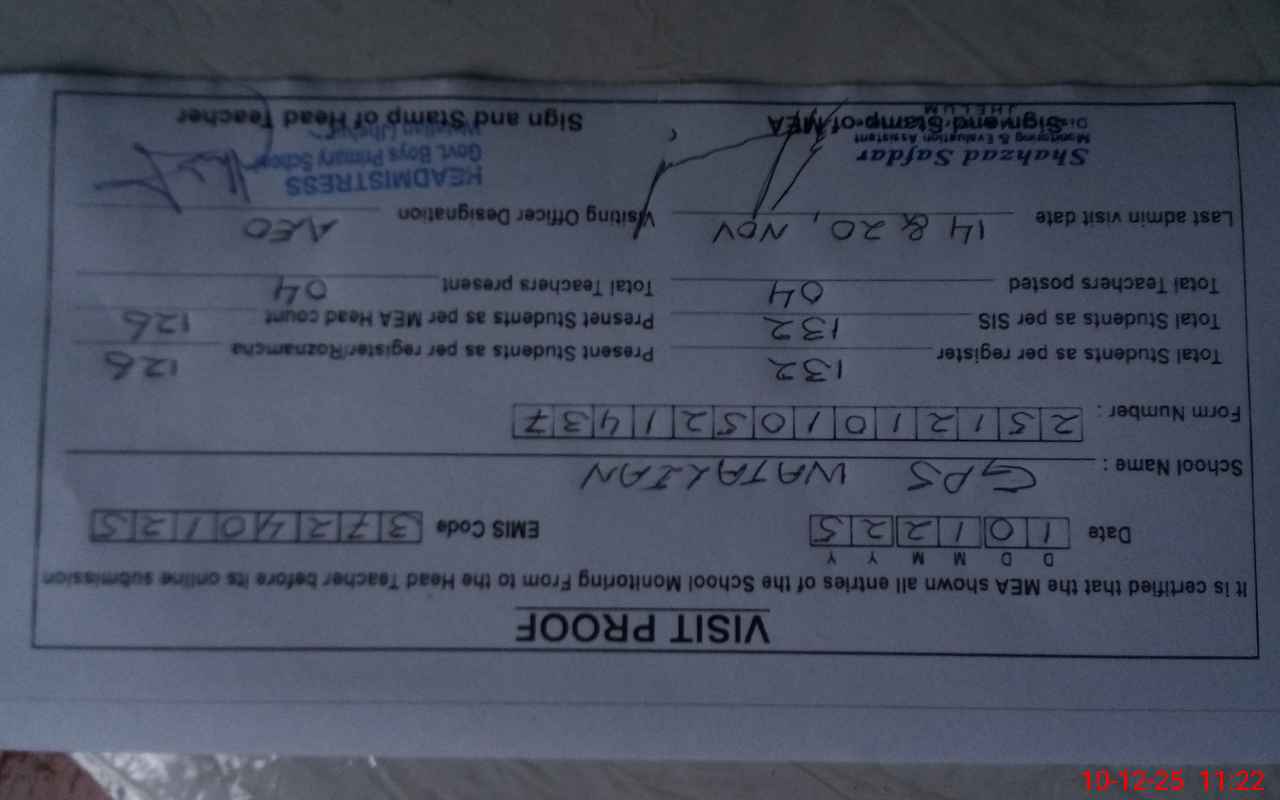 VISIT PROOF
It is certified that the MEA shown all entries of the School Monitoring From to the Head Teacher before its online submission
D D M M Y Y
Date 1 0 1 2 2 5 EMIS Code 3 7 2 4 0 1 2 5
School Name : GPS WATALIAN
Form Number : 2 5 1 2 1 0 1 0 5 2 1 4 3 7
Total Students as per register 132 Present Students as per register/Roznamcha 126
Total Students as per SIS 132 Presnet Students as per MEA Head count 126
Total Teachers posted 04 Total Teachers present 04
Last admin visit date 14 & 20, NOV Visiting Officer Designation AEO
Shahzad Safdar HEADMISTRESS
Monitoring & Evaluation Assistant Govt. Boys Primary School
Sign and Stamp of MEA Sign and Stamp of Head Teacher
JHELUM
10-12-25 11:22